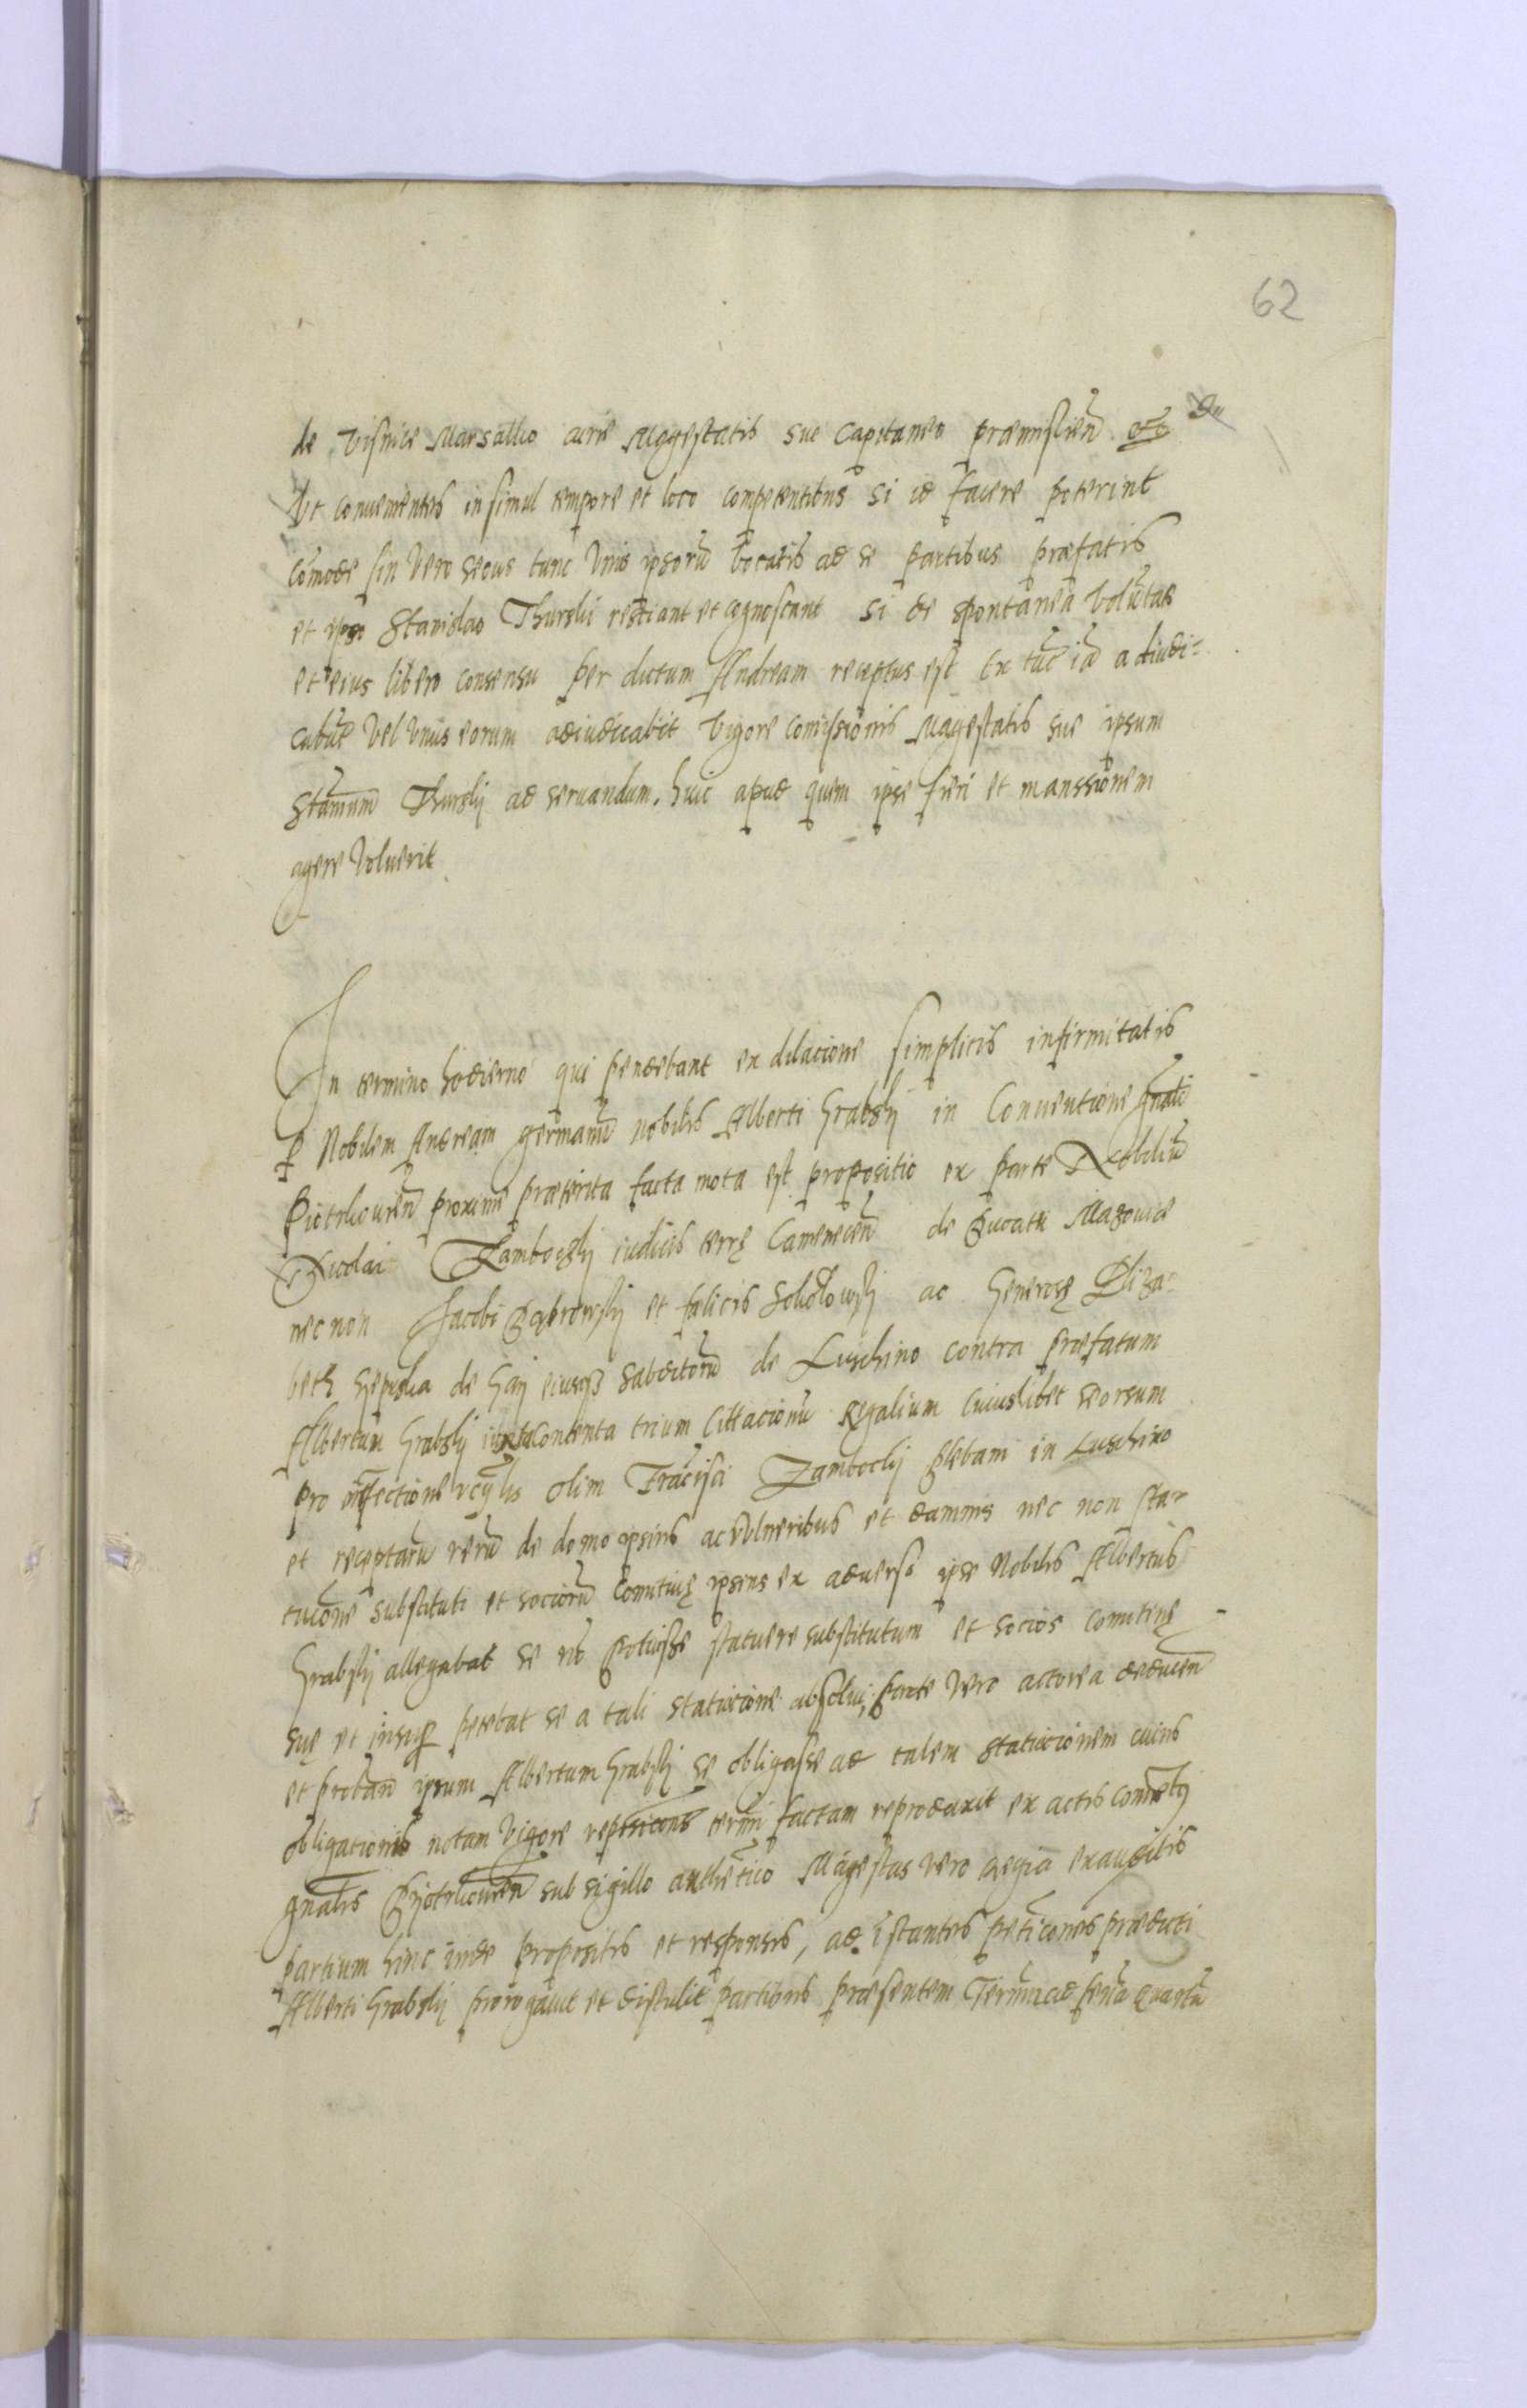 62
de Visnice Marsallio curie Magestatis sue Capitaneo præmislien̄ etc
Vt conuenientes insimul tempore et loco competentibus si id facere poterint
com̄ode sin Vero secus tunc Vnus ipsorū Vocatis ad se partibus præfatis
et ipso Stanislao Thurskii resciant et cognoscant si de spontanea volūtate
et eius libero consensu per dictum Andream receptus est Ex tūc id adiudi-
cabūt Vel Vnus eorum adiudicabit Vigore comissionis Magestatis sue ipsum
Stanūm Thurskij ad seruandum. huic apud quem ipse fieri et manssionem
agere Voluerit
In termino hodierno qui pendebant ex dilacione simplicis infirmitatis
p Nobilem Andream germanū nobilis Alberti Grabskij in Conuentione gnāli
Piotrkouien̄ proxime præterita facta mota est propositio ex parte Nobiliū
Nicolai Zamboczkij iudicis terrę Camenecen̄ de Ducatu Mazouie
nec non Jacobi Dąbrowskij et fælicis Sokolowskij ac Generosę Eliza-
beth de Gaij de Luschino contra præfatum
Albertum Grabskij iuxta contenta trium Cittacionū Regalium Cuiuslibet seorsum
pro olim Frācisci Zambockij plebani in Luschino
et receptarū rerū de domo ipsius ac Vulneribus et damnis nec non sta-
tucōne substituti et sociorū Comitiuę ipsius ex aduerso ipse Nobilis Albertus
Grabskij allegabat se nō potuisse statuere substitutum et socios comitiuę
suę et insup petebat se a tali statucione absolui, parte Vero actorea deducen̄
et proban̄ ipsum Albertum Grabskij se obligasse ad talem statucionem cuius
obligationis notam Vigore termi factam reproduxit ex actis Conuētꝯ
gnālis Pijotrkouien̄ sub sigillo authētico Magestas vero Regia exauditis
partium hinc inde propositis et responsis, ad īstantes peticones prædicti
Alberti Grabskij prorogauit et distulit partibus præsentem Terminū ad feriā quartā